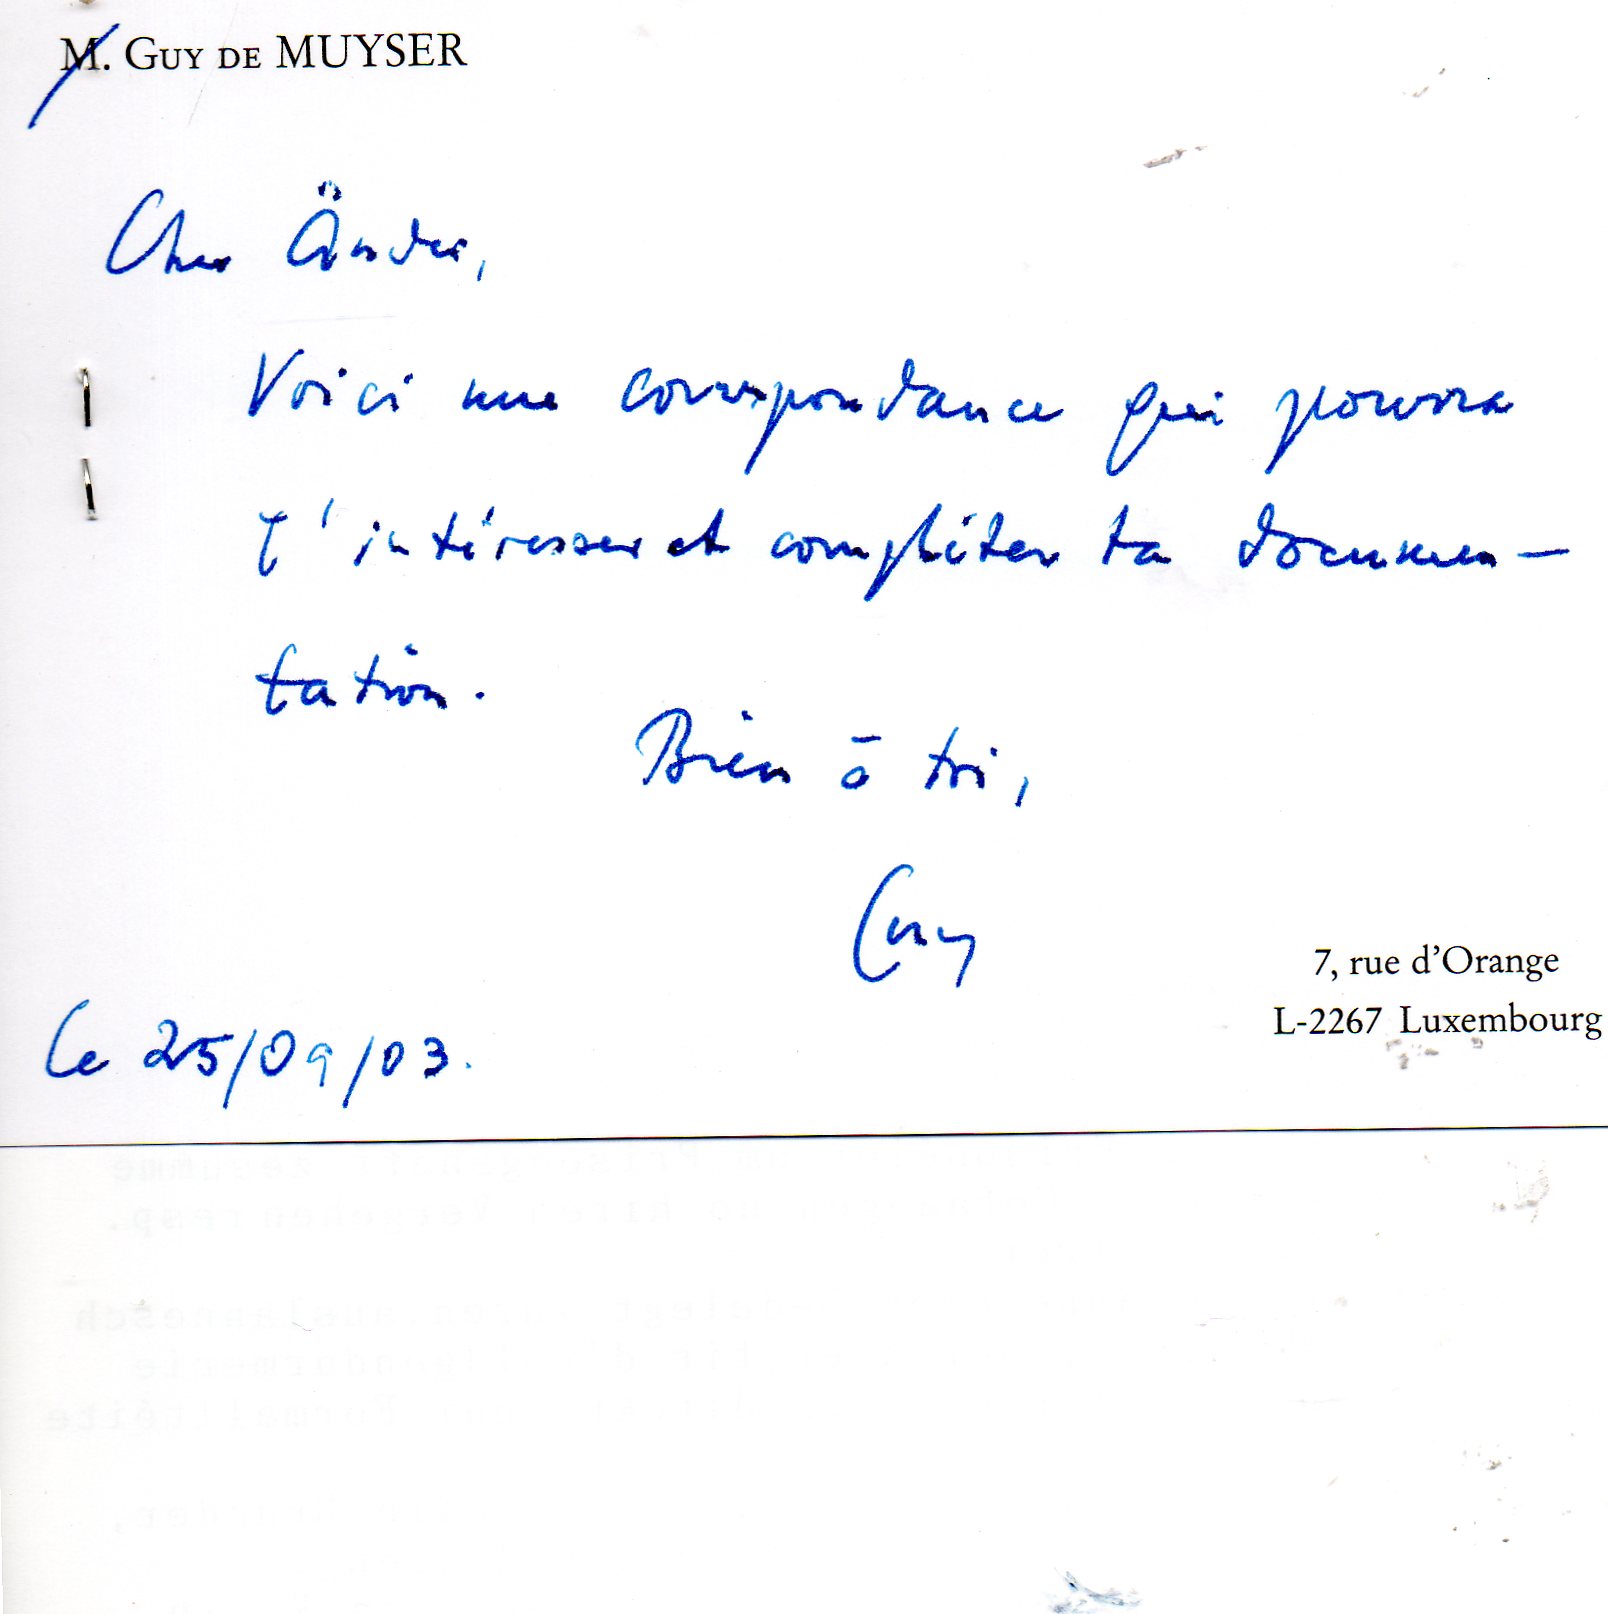 M. GUY DE MUYSER
Cher Änder,
Voici une correspondance qui pourra
t'intéresser et compléter ta documen-
tation.
Bien à toi,
Guy
7, rue d'Orange
L-2267 Luxembourg
Le 25/09/03.